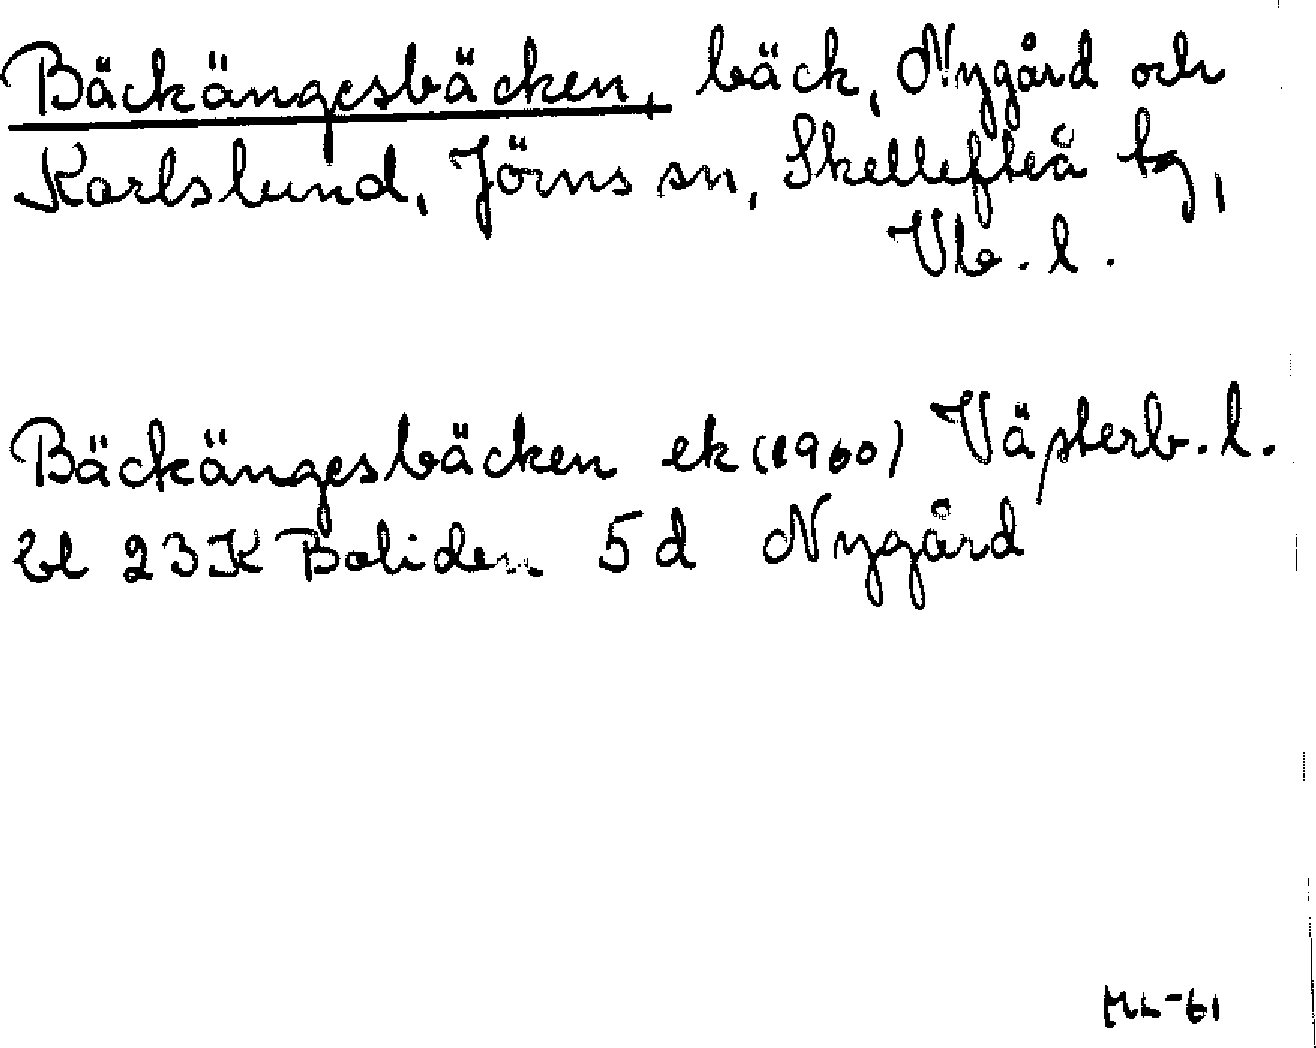 Bäckängesbäcken, bäck, Nygård och
Karlslund, Jörns sn, Skellefteå tg,
Vb. l.
Bäckängesbäcken ek (1960) Västerb. l.
bl 23K Boliden 5d Nygård
ML-61